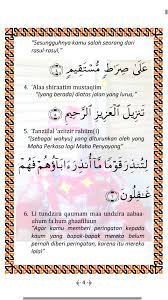 "Sesungguhnya kamu salah seorang dari
rasul-rasul,"
عَلَىٰ صِرَٰطٍ مُّسْتَقِيمٍ
4. 'Alaa shiraatim mustaqiim
"(yang berada) diatas jalan yang lurus,"
تَنزِيلَ ٱلْعَزِيزِ ٱلرَّحِيمِ
5. Tanziilal 'aziizir rahiim(i)
"(sebagai wahyu) yang diturunkan oleh yang
Maha Perkasa lagi Maha Penyayang"
لِتُنذِرَ قَوْمًا مَّآ أُنذِرَ ءَابَآؤُهُمْ فَهُمْ
غَٰفِلُونَ
6. Li tundzira qaumam maa undzira aabaa
uhum fa hum ghaafiluun
"Agar kamu memberi peringatan kepada
kaum yang bapak-bapak mereka belum
pernah diberi peringatan, karena itu mereka
lalai"
4